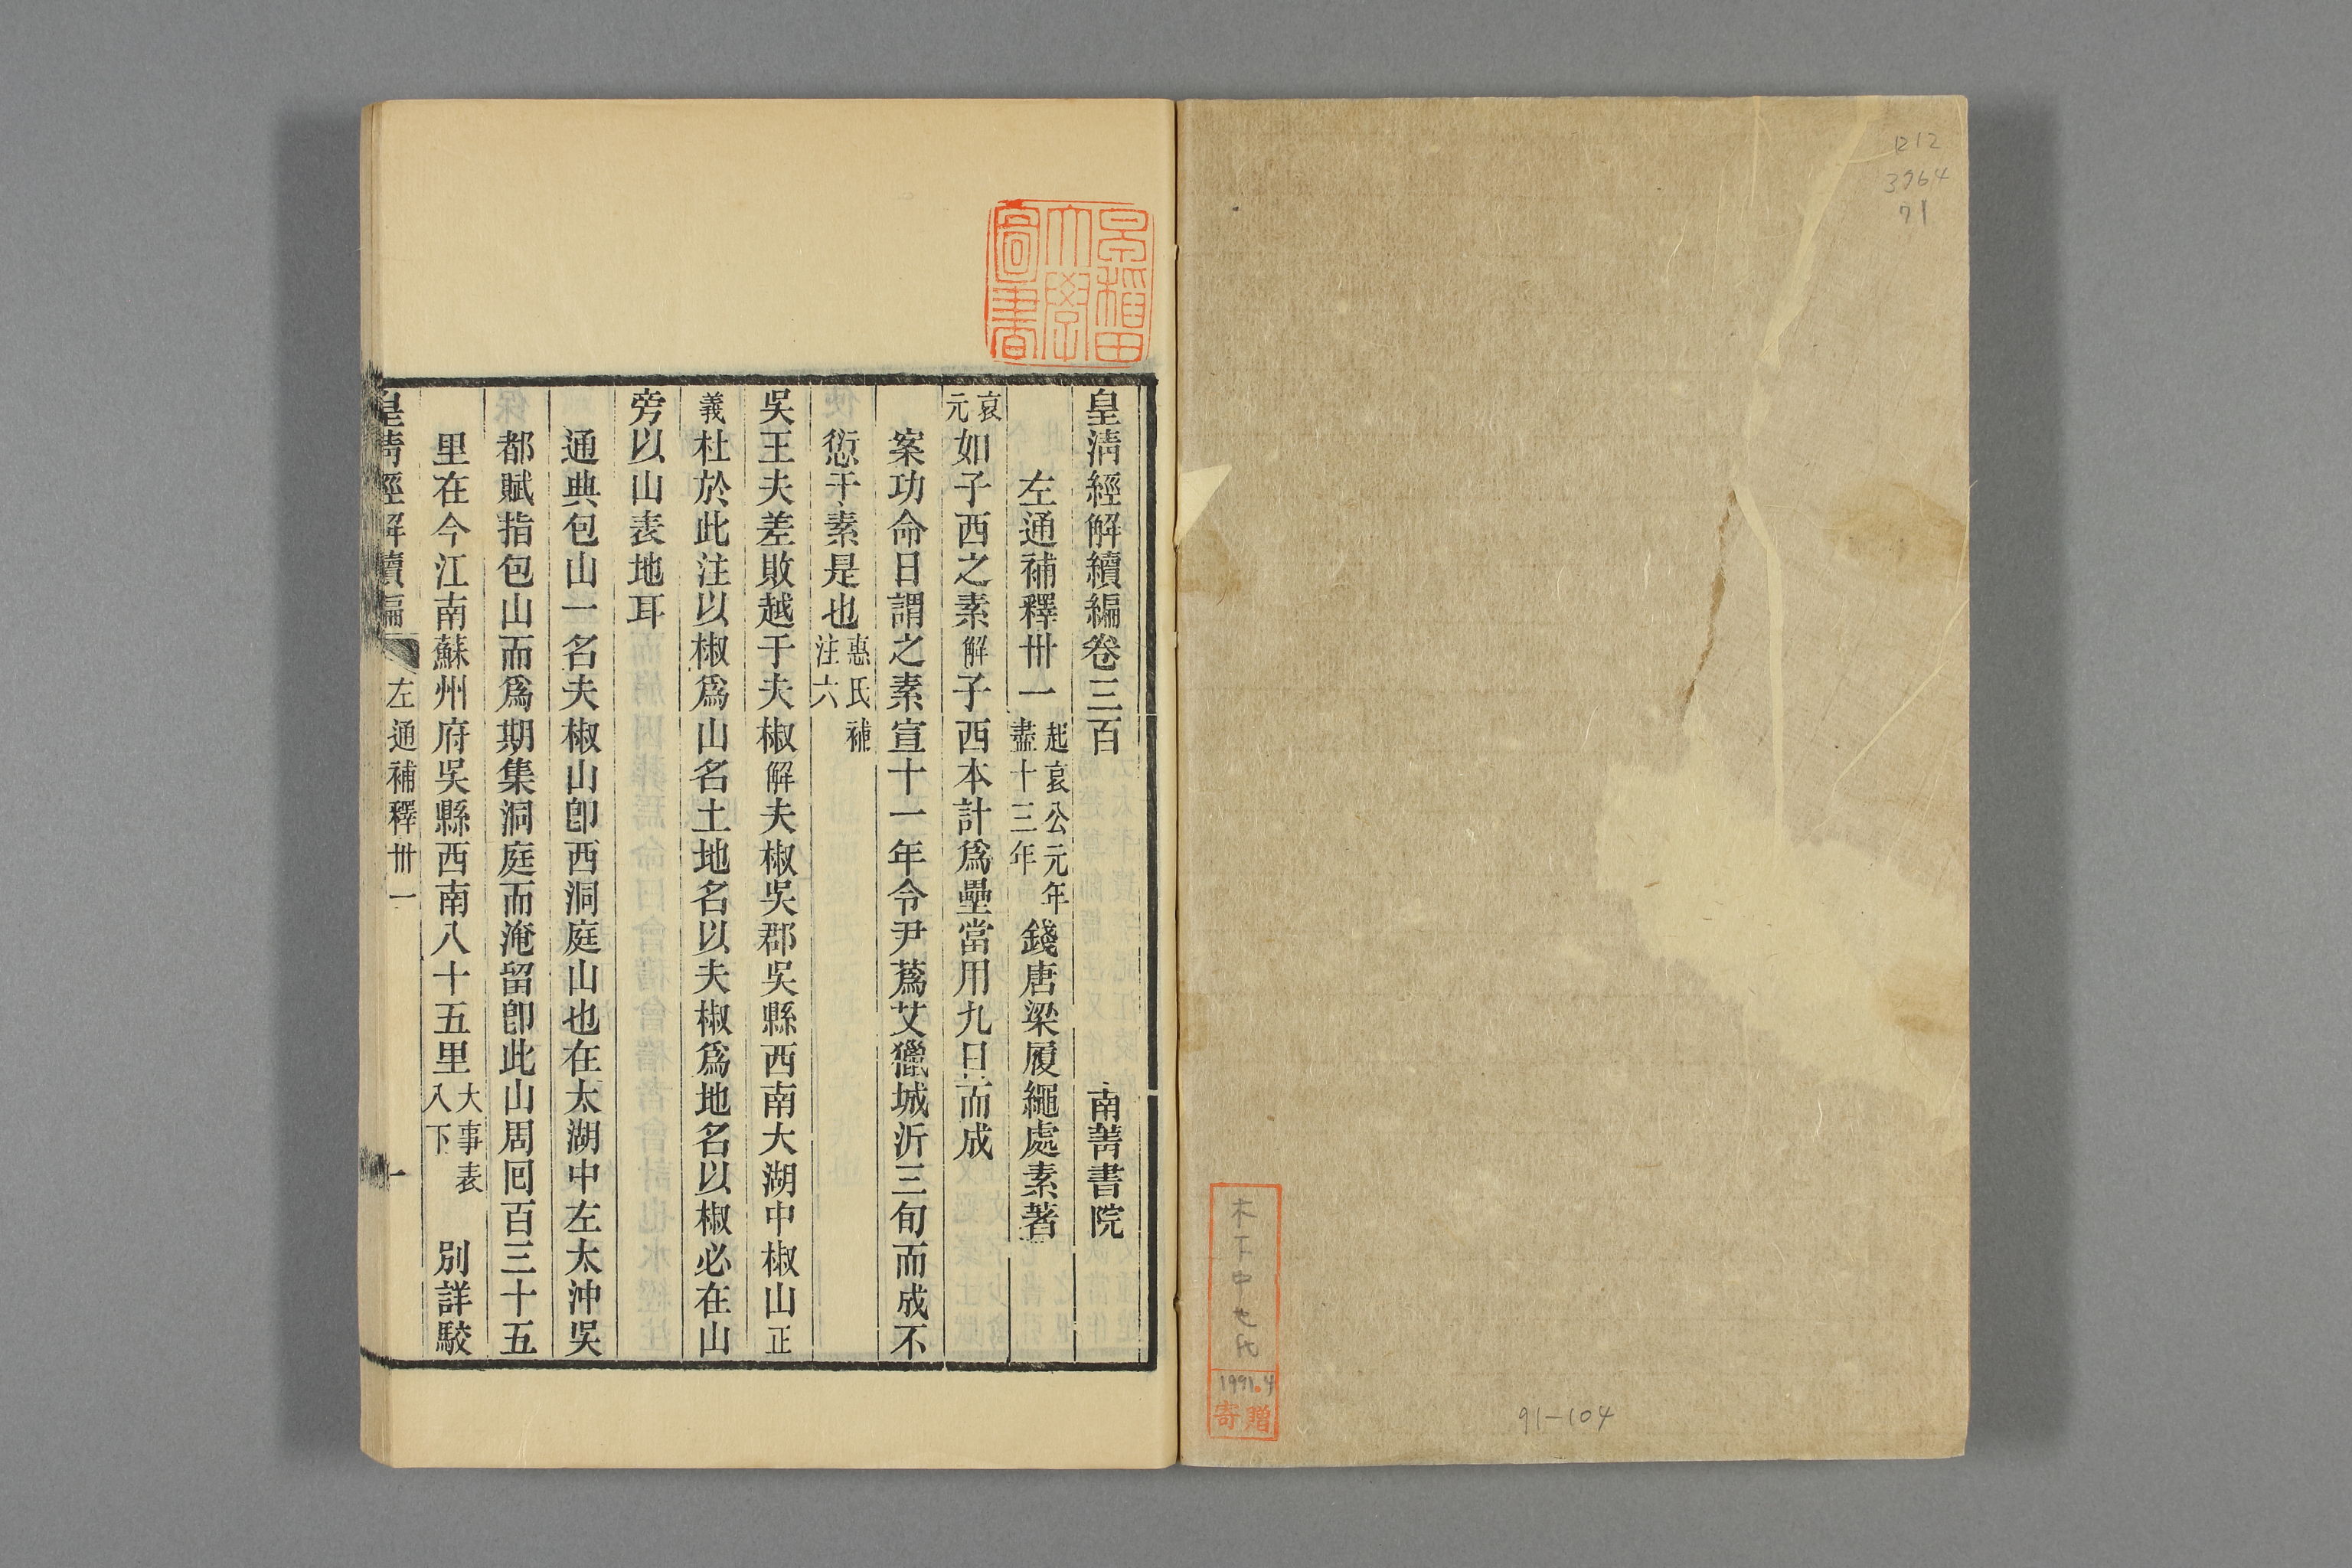 ロ12
3964
71
木下中也氏
1991.4
寄贈
91-104
早稲田
大學
圖書
皇清經解續編卷三百
南菁書院
左通補釋卅一
起哀公元年
盡十三年
錢唐梁履繩處素著
哀
元
如子西之素
解
子西本計爲壘當用九日而成
案功命日謂之素宣十一年令尹蔿艾獵城沂三旬而成不
愆于素是也
惠氏補
注六
吳王夫差敗越于夫椒
解
夫椒吳郡吳縣西南大湖中椒山
正
義
杜於此注以椒爲山名土地名以夫椒爲地名以椒必在山
旁以山表地耳
通典包山一名夫椒山卽西洞庭山也在太湖中左太沖吳
都賦指包山而爲期集洞庭而淹留卽此山周囘百三十五
里在今江南蘇州府吳縣西南八十五里
大事表
八下
別詳駁
皇淸經解續編
左通補釋卅一
一